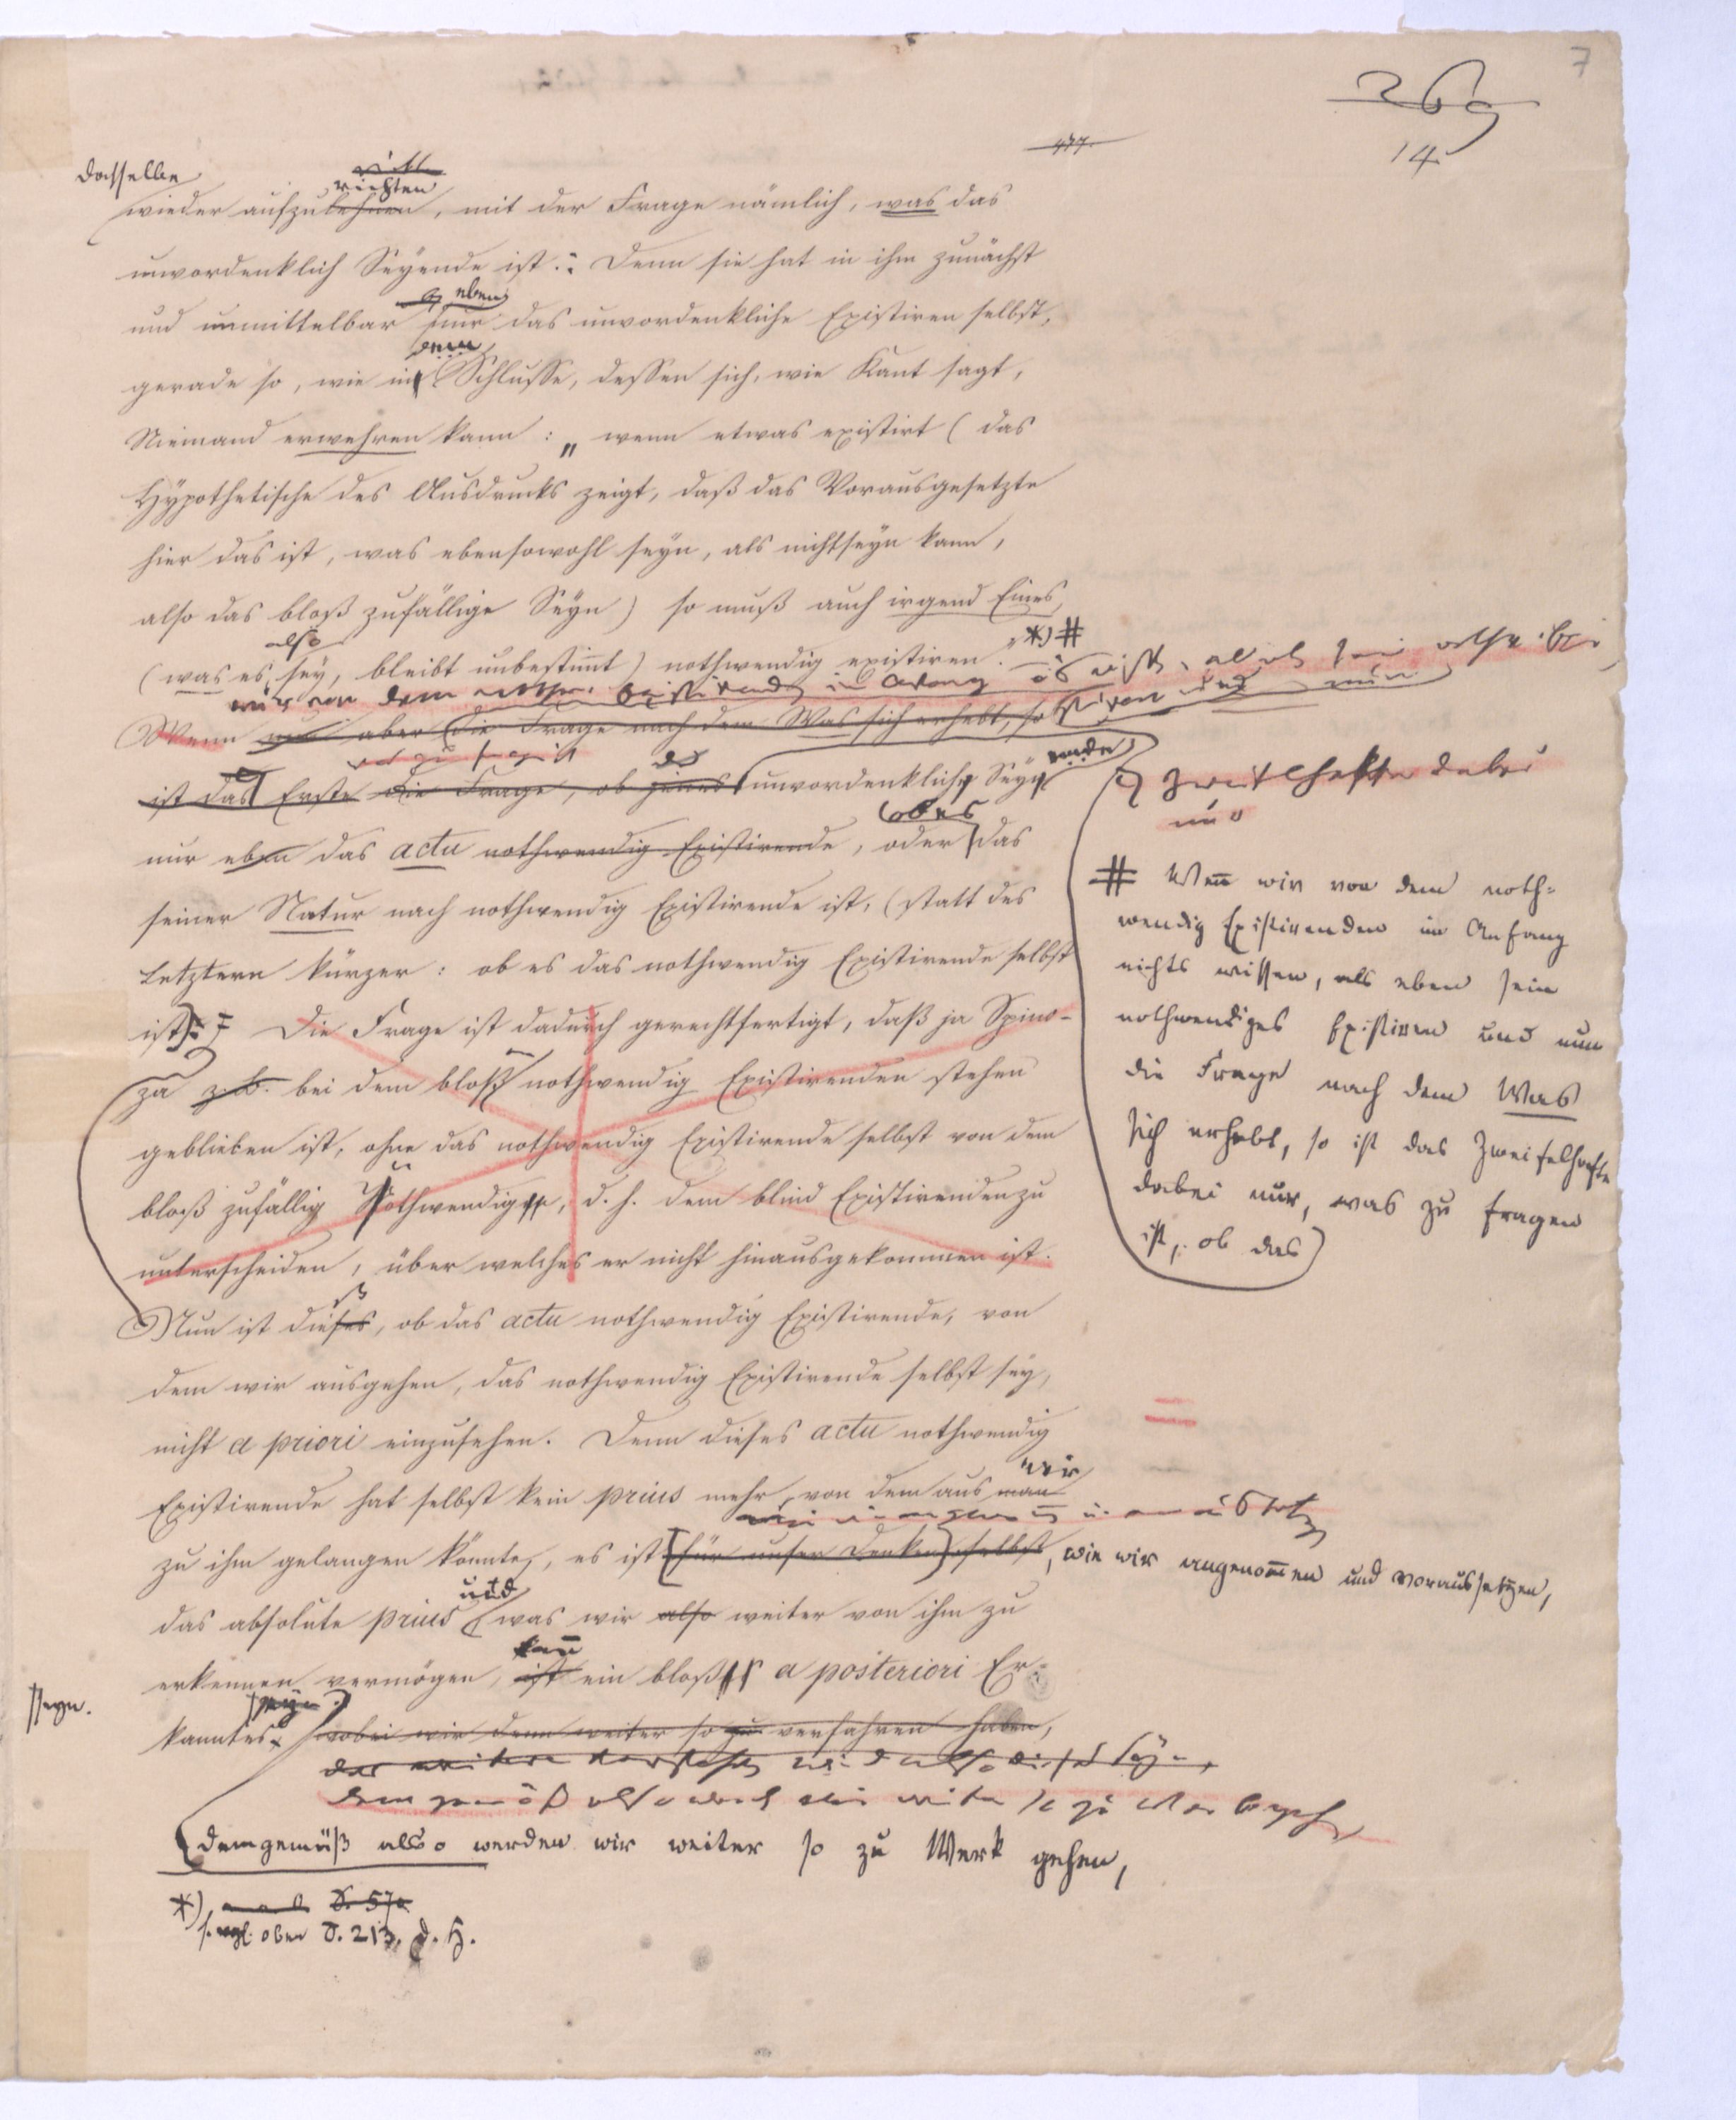 7
269
14
477.
dasselbe
richten
wieder aufzulehnen, mit der Frage nämlich, was das
unvordenklich Seyende ist. Denn sie hat in ihm zunächst
eben
und unmittelbar nur das unvordenkliche Existiren selbst,
dem
gerade so, wie im Schlusse, dessen sich, wie Kant sagt,
Niemand erwehren kann: „wenn etwas existirt (das
Hypothetische des Ausdrucks zeigt, daß das Vorausgesetzte
hier das ist, was ebensowohl seyn, als nichtseyn kann,
also das bloß zufällige Seyn) so muß auch irgend Eines,
also
(was es sey, bleibt unbestimmt) nothwendig existiren." *) #
wir von dem nothw. Existirenden im Anfang
Wenn nun aber die Frage nach dem Was sich erhebt, so
was zu fragen ist
das
ende
ist das Erste die Frage, ob jenes unvordenkliche Seyn
ob es
nur eben das actu nothwendig Existirende, oder das
seiner Natur nach nothwendig Existirende ist, (statt des
Letztern kürzer: ob es das nothwendig Existirende selbst
ist). Die Frage ist dadurch gerechtfertigt, daß ja Spino-
za z. B. bei dem bloß nothwendig Existirenden stehen
geblieben ist, ohne das nothwendig Existirende selbst von dem
bloß zufällig Nothwendigen, d. h. dem blind Existirenden zu
unterscheiden, über welches er nicht hinausgekommen ist.
Nun ist dieses, ob das actu nothwendig Existirende, von
dem wir ausgehen, das nothwendig Existirende selbst sey,
nicht a priori einzusehen. Denn dieses actu nothwendig
wir
Existirende hat selbst kein prius mehr, von dem aus man
zu ihm gelangen könnte, es ist (für unser Denken) selbst, wie wir angenommen und voraussetzen,
und
das absolute prius was wir also weiter von ihm zu
kann
erkennen vermögen, ist ein bloß a posteriori Er-
seyn.
seyn.
kanntes wobei wir denn weiter so zu verfahren haben,
demgemäß also werden wir weiter so zu Werk gehen,
*) S. 57
s. vgl. oben S. 213, d. H.
Zweifelhafte dabei
nur
# Wenn wir von dem noth-
wendig Existirenden im Anfang
nichts wissen, als eben sein
nothwendiges Existiren und nun
die Frage nach dem Was
sich erhebt, so ist das Zweifelhafte
dabei nur, was zu fragen
ist, ob das)